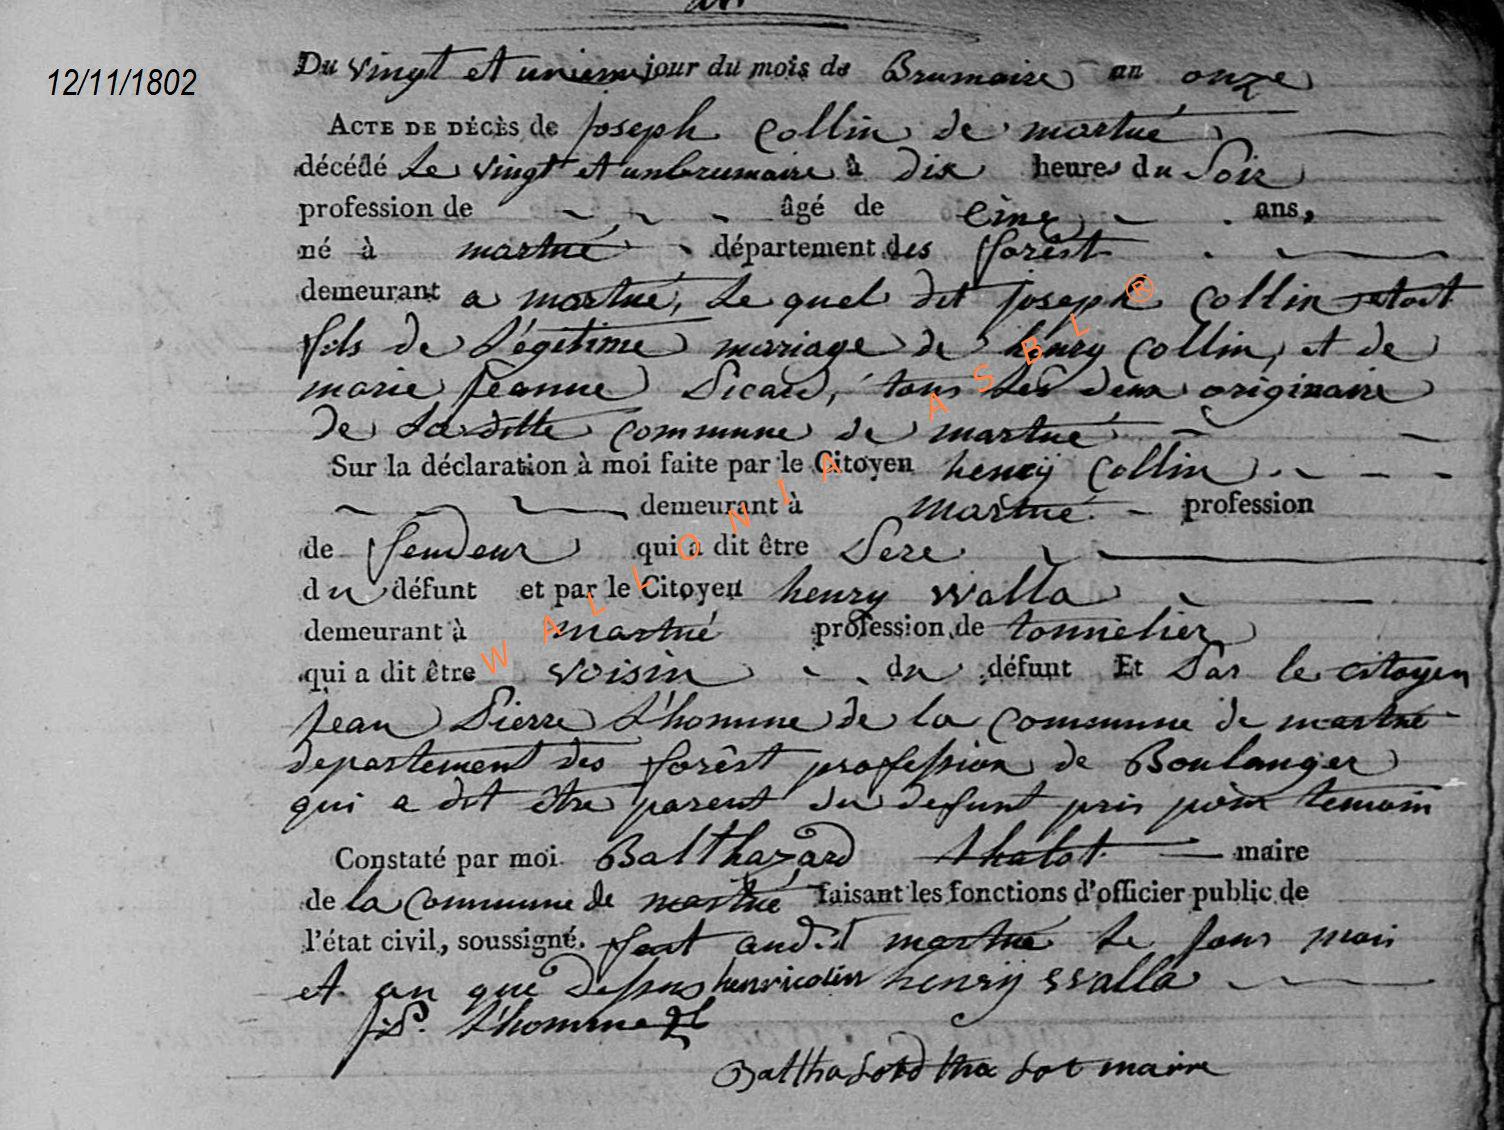 12/11/1802
Du vingt et unieme jour du mois de Brumaire an onze
ACTE DE DÉCÈS de joseph Collin de martué
décédé Le vingt et un brumaire à dix heures du Soir
profession de âgé de Cinq ans,
né à martué département des forêst
demeurant a martué, Le quel dit joseph Collin etoit
fils de Légetime mariage de henry Collin, et de
marie jeanne Sicard, tous Les deux originaire
de La ditte Commune de martué
Sur la déclaration à moi faite par le Citoyen henry Collin
demeurant à martué profession
de fendeur qui a dit être Pere
du défunt et par le Citoyen henry walla
demeurant à martué profession de tonnelier
qui a dit être voisin du défunt Et Par le citoyen
jean Pierre L'homme de la Commune de martué
departement des forêst profession de Boulanger
qui a dit être parent du defunt pris pour temoin
Constaté par moi Balthazard thalot maire
de la Commune de martué faisant les fonctions d'officier public de
l'état civil, soussigné. feat audit martué Le jour mois
et an que dessus henri colin henry walla
L'homme
Balthasord tha lot maire
WALLONIA ASBL ®